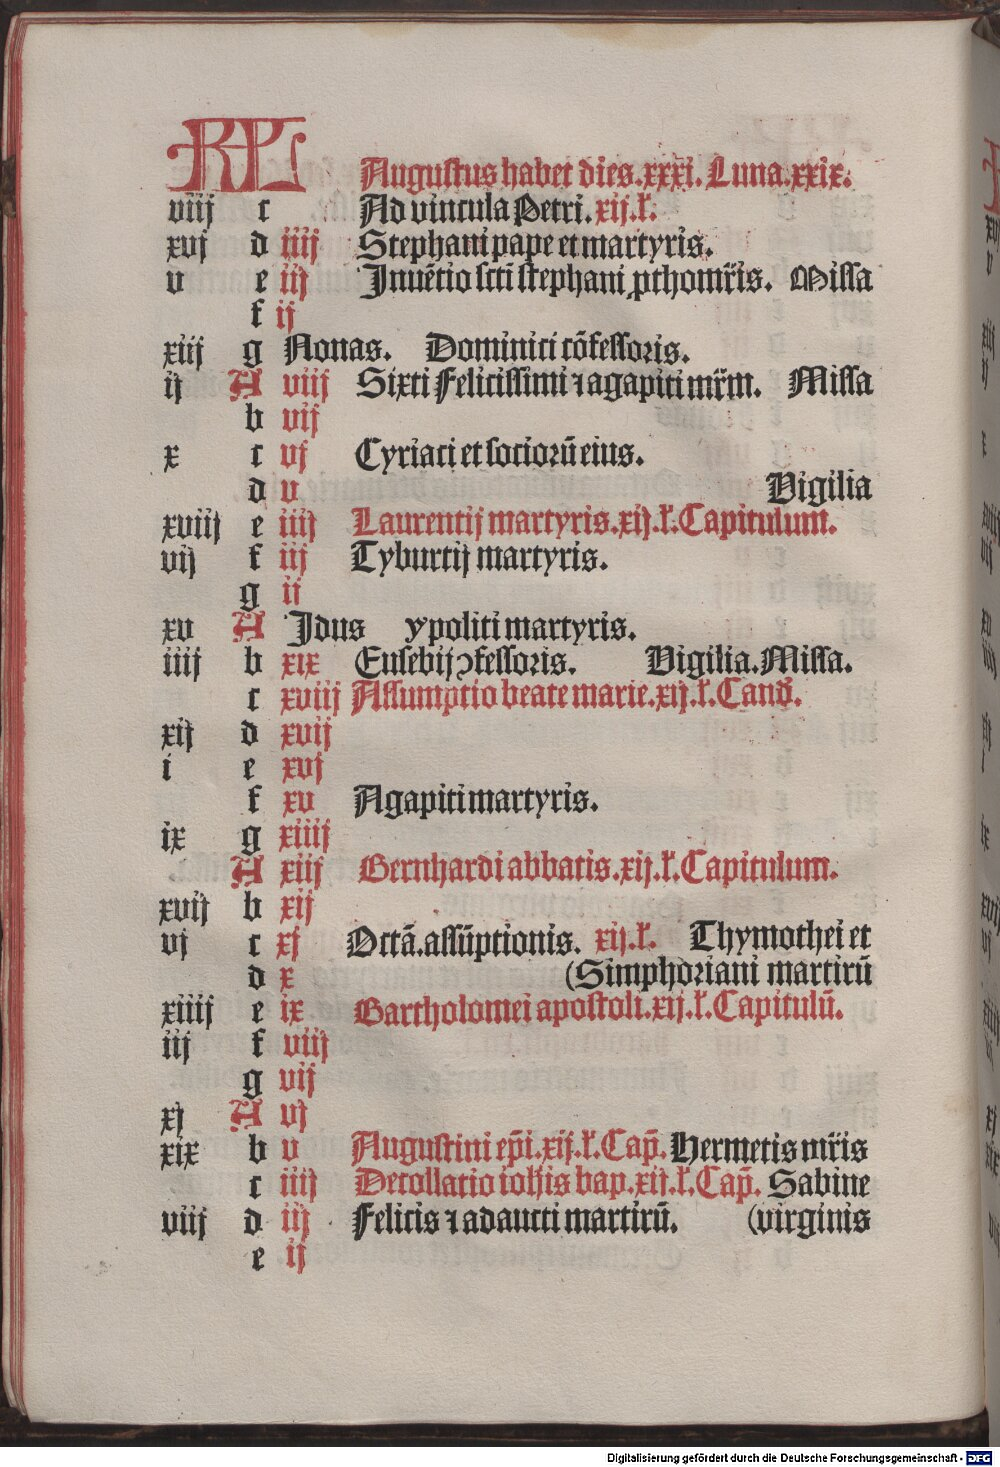 KL Augustus habet dies.xxxi. Luna.xxix.
viij c Ad vincula Petri. xij.l̃.
xvj d iiij Stephani pape et martyris.
v e iij Inuẽtio scti stephani ꝓthom̃ris. Missa
f ij
xiij g Nonas. Dominici cõfessoris.
ij A viij Sixti Felicissimi ⁊ agapiti mr̃m. Missa
b vij
x c vj Cyriaci et sociorũ eius.
d v Vigilia
xviij e iiij Laurentij martyris.xij.l̃.Capitulum.
vij f iij Tyburtij martyris.
g ij
xv A Idus ypoliti martyris.
iiij b xix Eusebij ꝯfessoris. Vigilia.Missa.
c xviij Assumptio beate marie.xij.l̃.Cand̃.
xij d xvij
i e xvj
f xv Agapiti martyris.
ix g xiiij
A xiij Bernhardi abbatis.xij.l̃.Capitulum.
xvij b xij
vj c xj Octã.assũptionis. xij.l̃. Thymothei et
d x (Simphoriani martirũ
xiiij e ix Bartholomei apostoli.xij.l̃.Capitulũ.
iij f viij
g vij
xj A vj
xix b v Augustini ep̃i.xij.l̃.Cap̃. Hermetis mr̃is
c iiij Decollatio ioh̃is bap.xij.l̃.Cap̃. Sabine
viij d iij Felicis ⁊ adaucti martirũ. (virginis
e ij
Digitalisierung gefördert durch die Deutsche Forschungsgemeinschaft - DFG